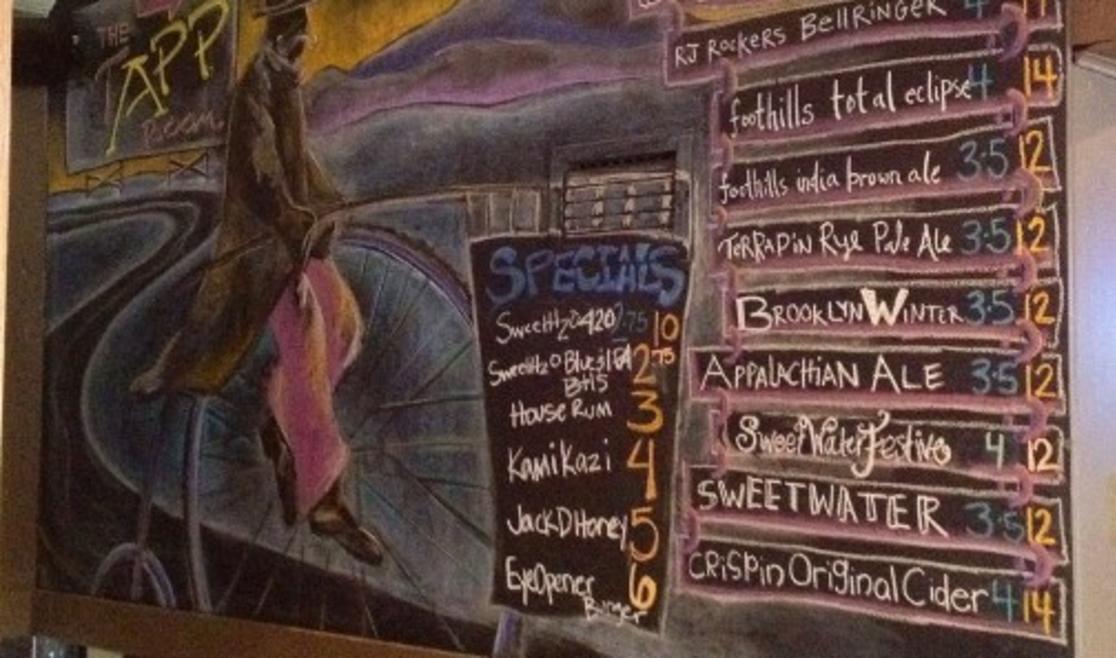 THE
TAPP
Room
RJ ROCKERS BELLRINGER 4
foothills total eclipse 4 14
foothills india brown ale 3.5 12
TERRAPIN Rye Pale Ale 3.5 12
BROOKLYN WINTER 3.5 12
APPALACHIAN ALE 3.5 12
SweetWater Festive 4 12
SWEETWATER 3.5 12
CRISPIN Original Cider 4 14
SPECIALS
SweetH2O 420 2.75 10
SweetH2O Blue
2.75
House Rum 3
KamiKazi 4
Jack D Honey 5
EyeOpener 6
Burger